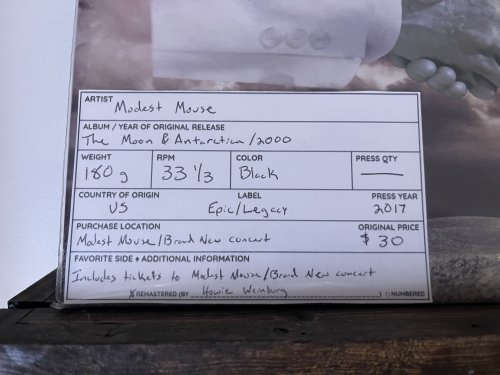 ARTIST Modest Mouse
ALBUM / YEAR OF ORIGINAL RELEASE
The Moon & Antarctica / 2000
WEIGHT RPM COLOR PRESS QTY
180 g 33 1/3 Black —
COUNTRY OF ORIGIN LABEL PRESS YEAR
US Epic/Legacy 2017
PURCHASE LOCATION ORIGINAL PRICE
Modest Mouse/Brand New concert $30
FAVORITE SIDE ♦ ADDITIONAL INFORMATION
Includes tickets to Modest Mouse/Brand New concert
X REMASTERED (BY Howie Weinburg ) □ NUMBERED